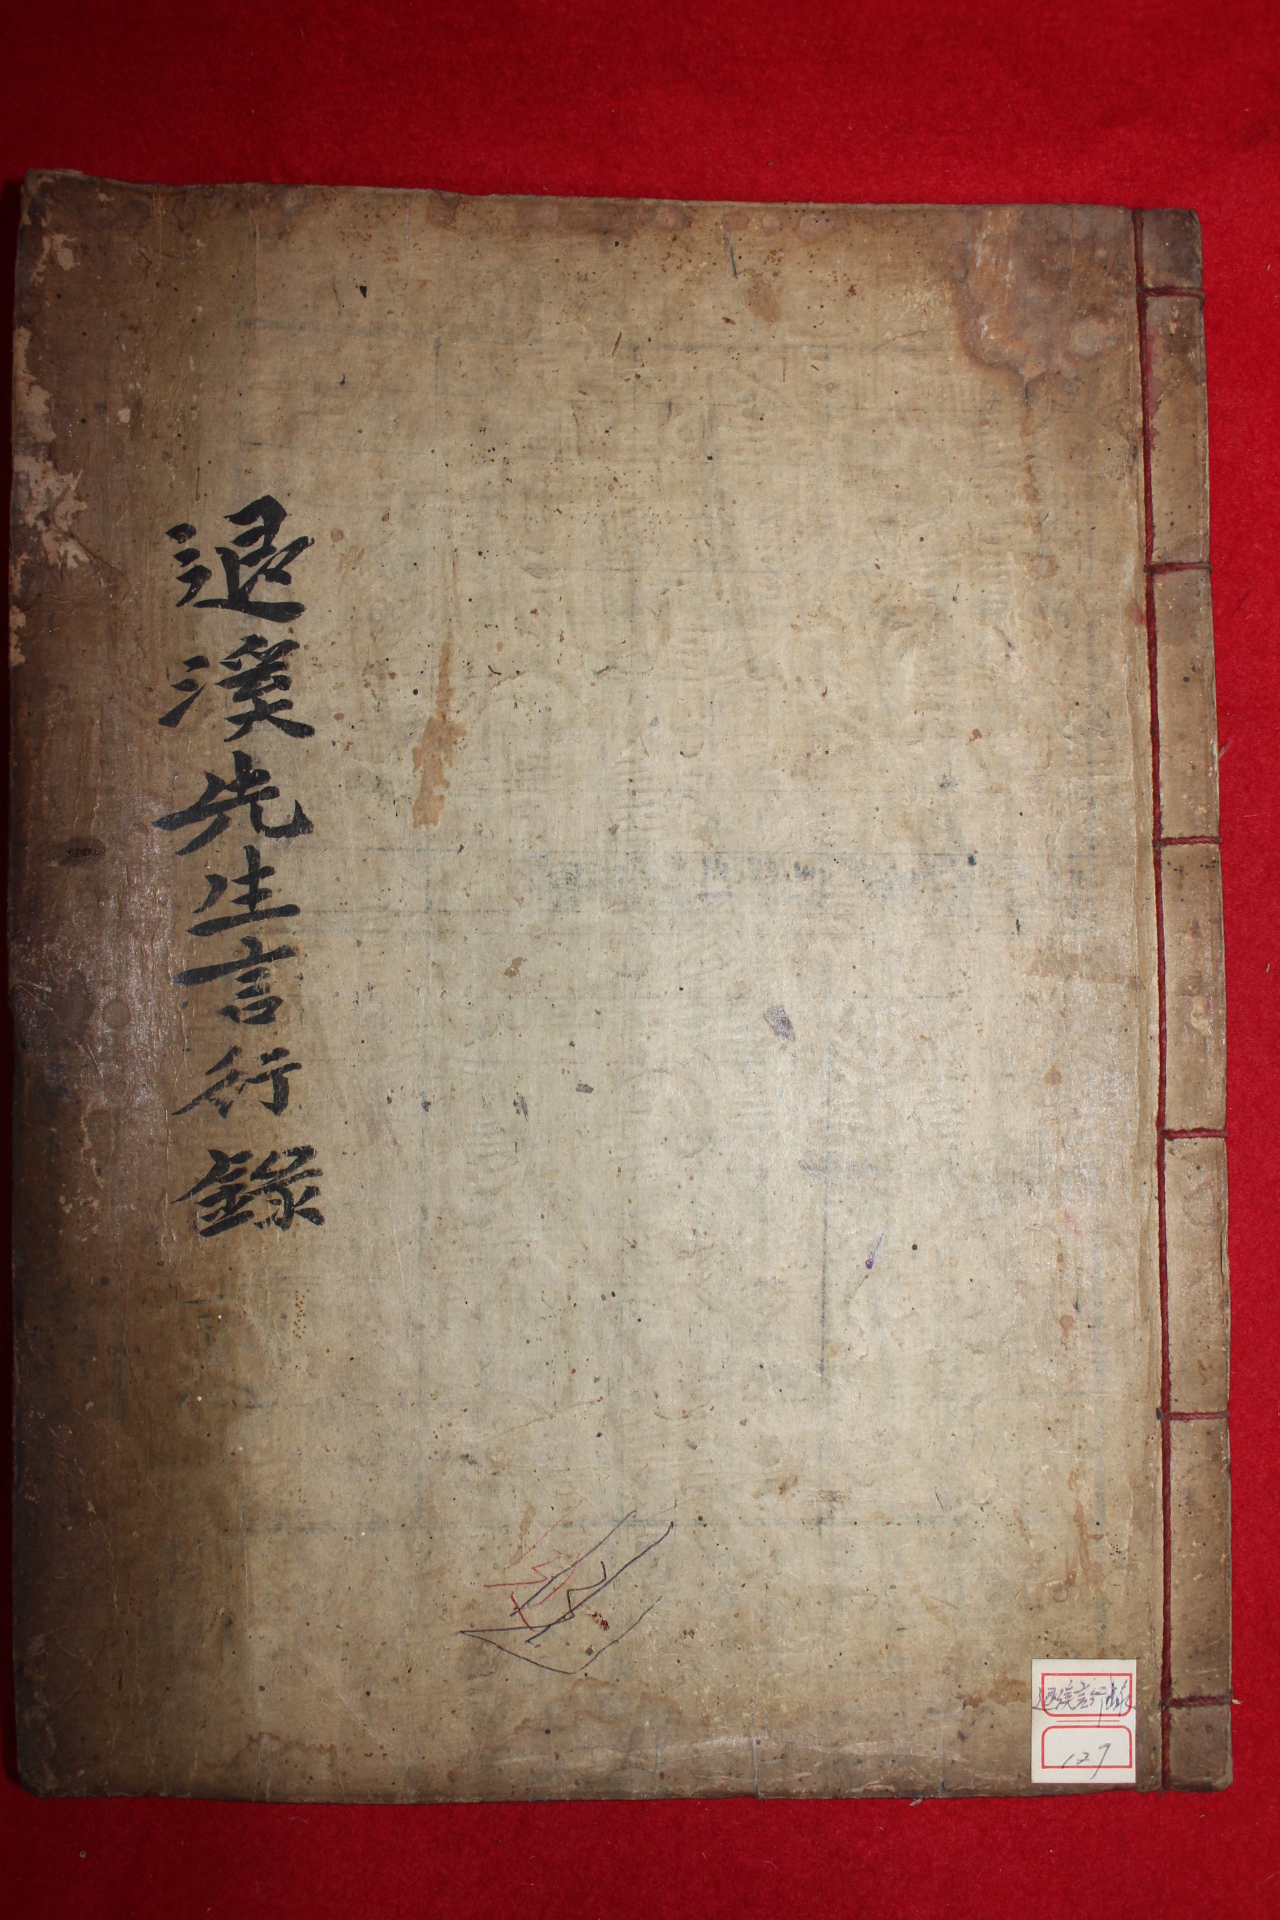 退溪先生言行錄
退溪言行錄
127